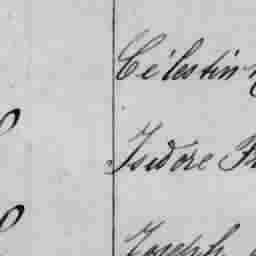 Célestin
Isidore Fr
Joseph